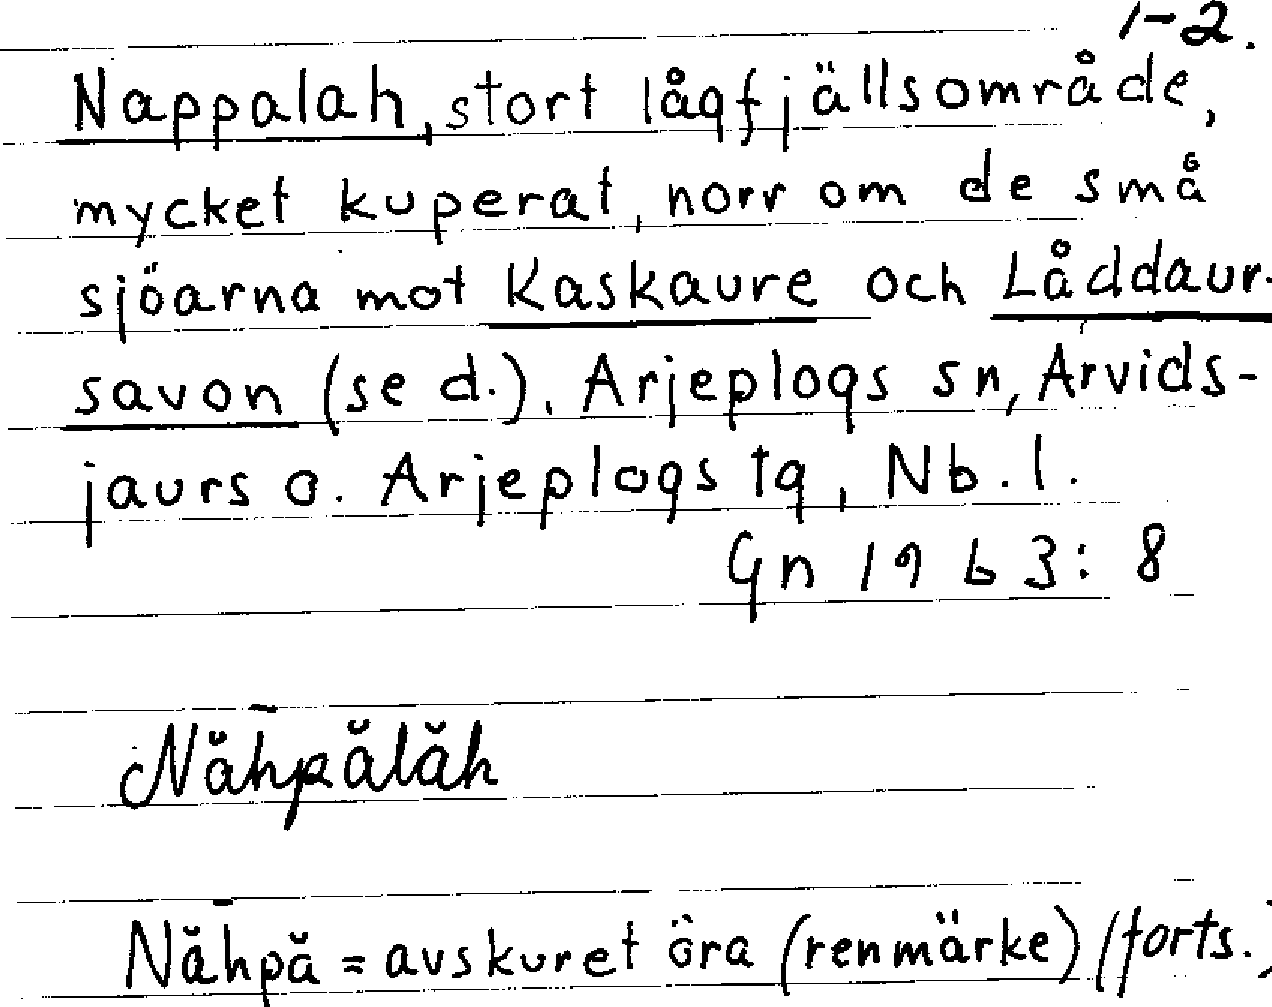 1-2.
Nappalah, stort lågfjällsområde,
mycket kuperat, norr om de små
sjöarna mot Kaskaure och Låddaur-
savon (se d.). Arjeplogs sn, Arvids-
jaurs o. Arjeplogs tg, Nb. l.
Gn 1963: 8
Năhpălăh
Năhpă = avskuret öra (renmärke) (forts.)